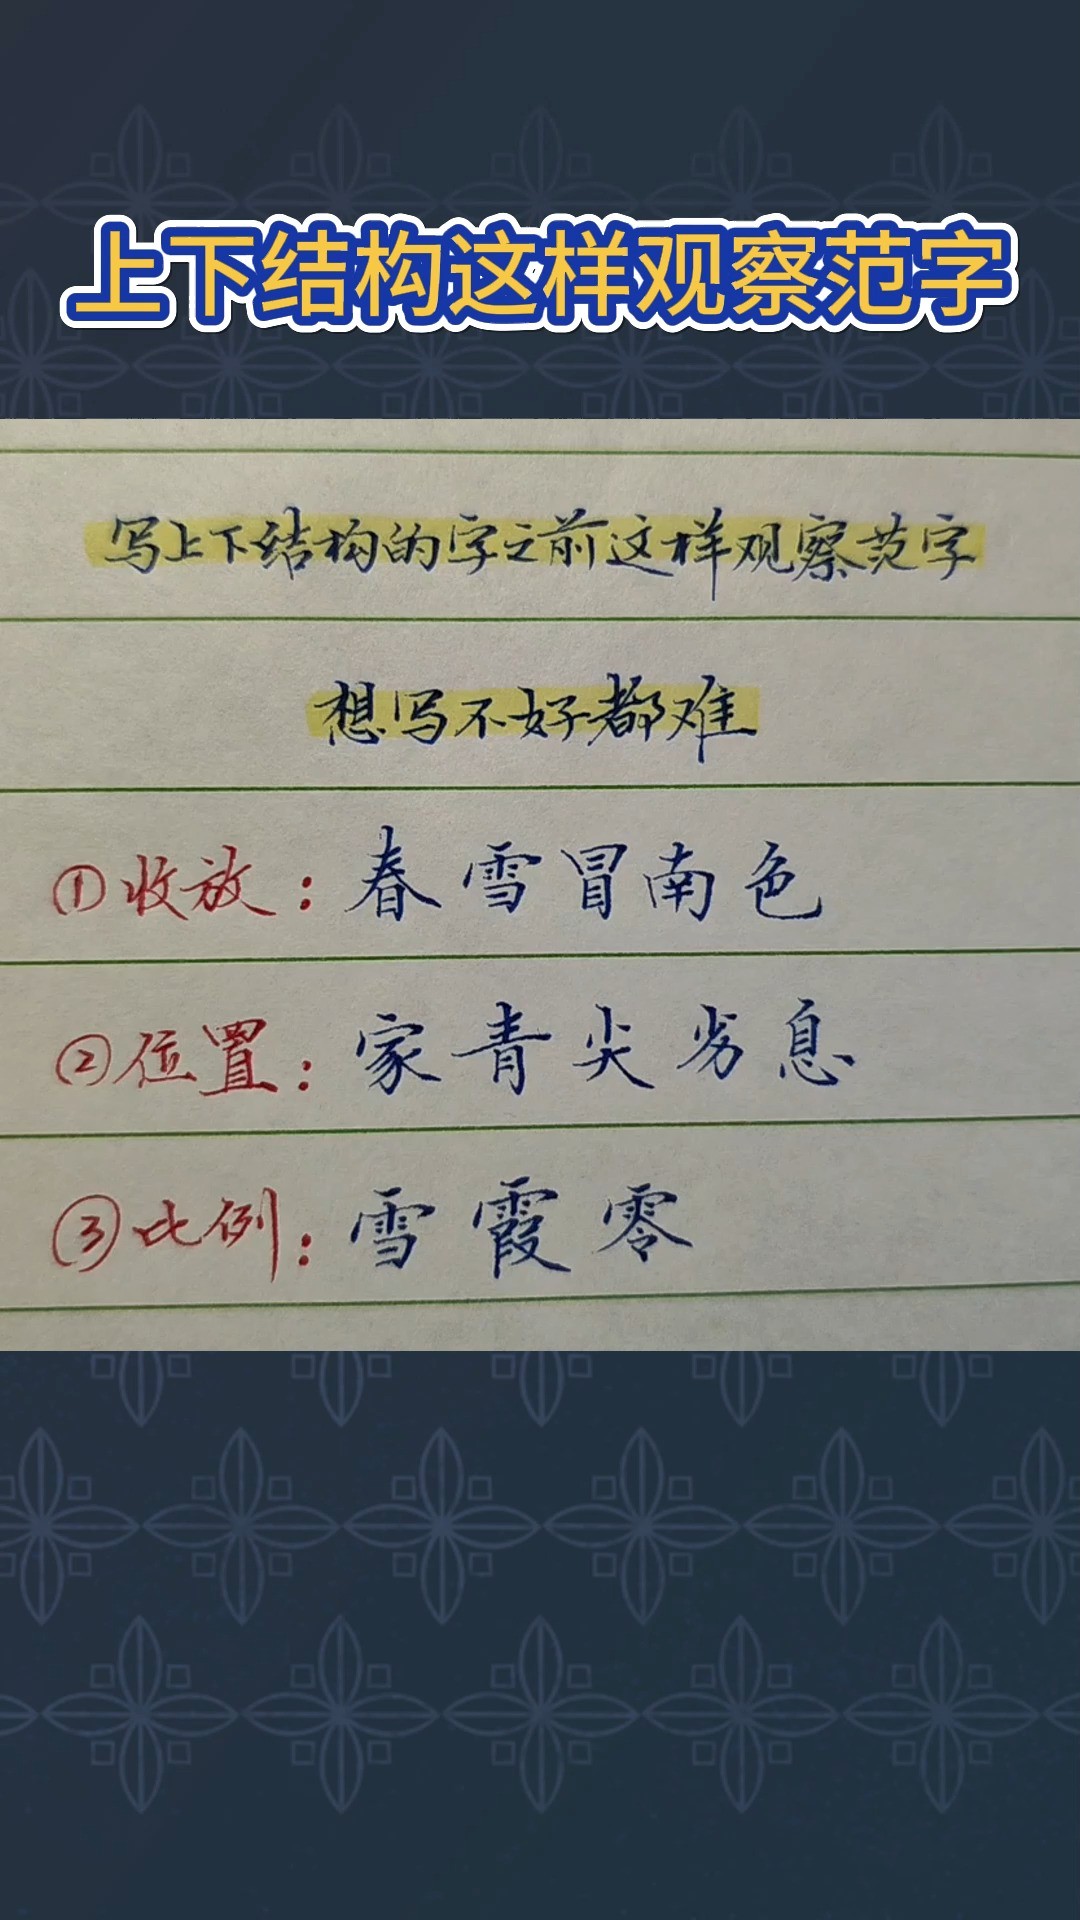 上下结构这样观察范字
写上下结构的字之前这样观察范字
想写不好都难
①收放：春雪冒南色
②位置：家青尖劣息
③比例：雪霞零